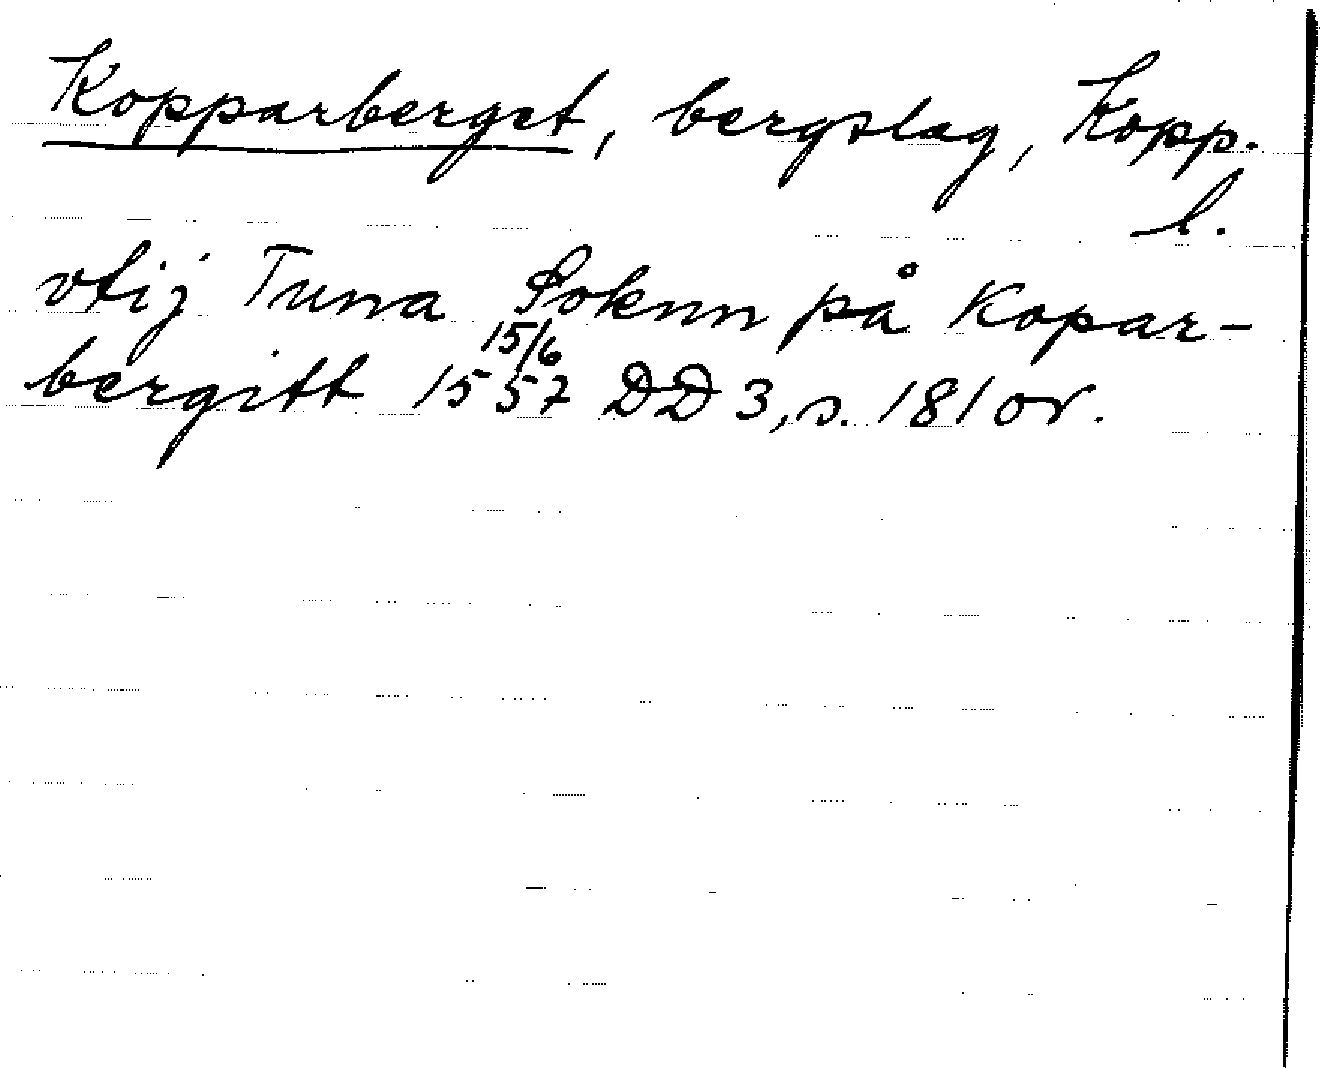 Kopparberget, bergslag, Kopp.
l.
vtij Tuna Soknn på Kopar-
15/6
bergitt 1557 DD 3, s. 181 or.